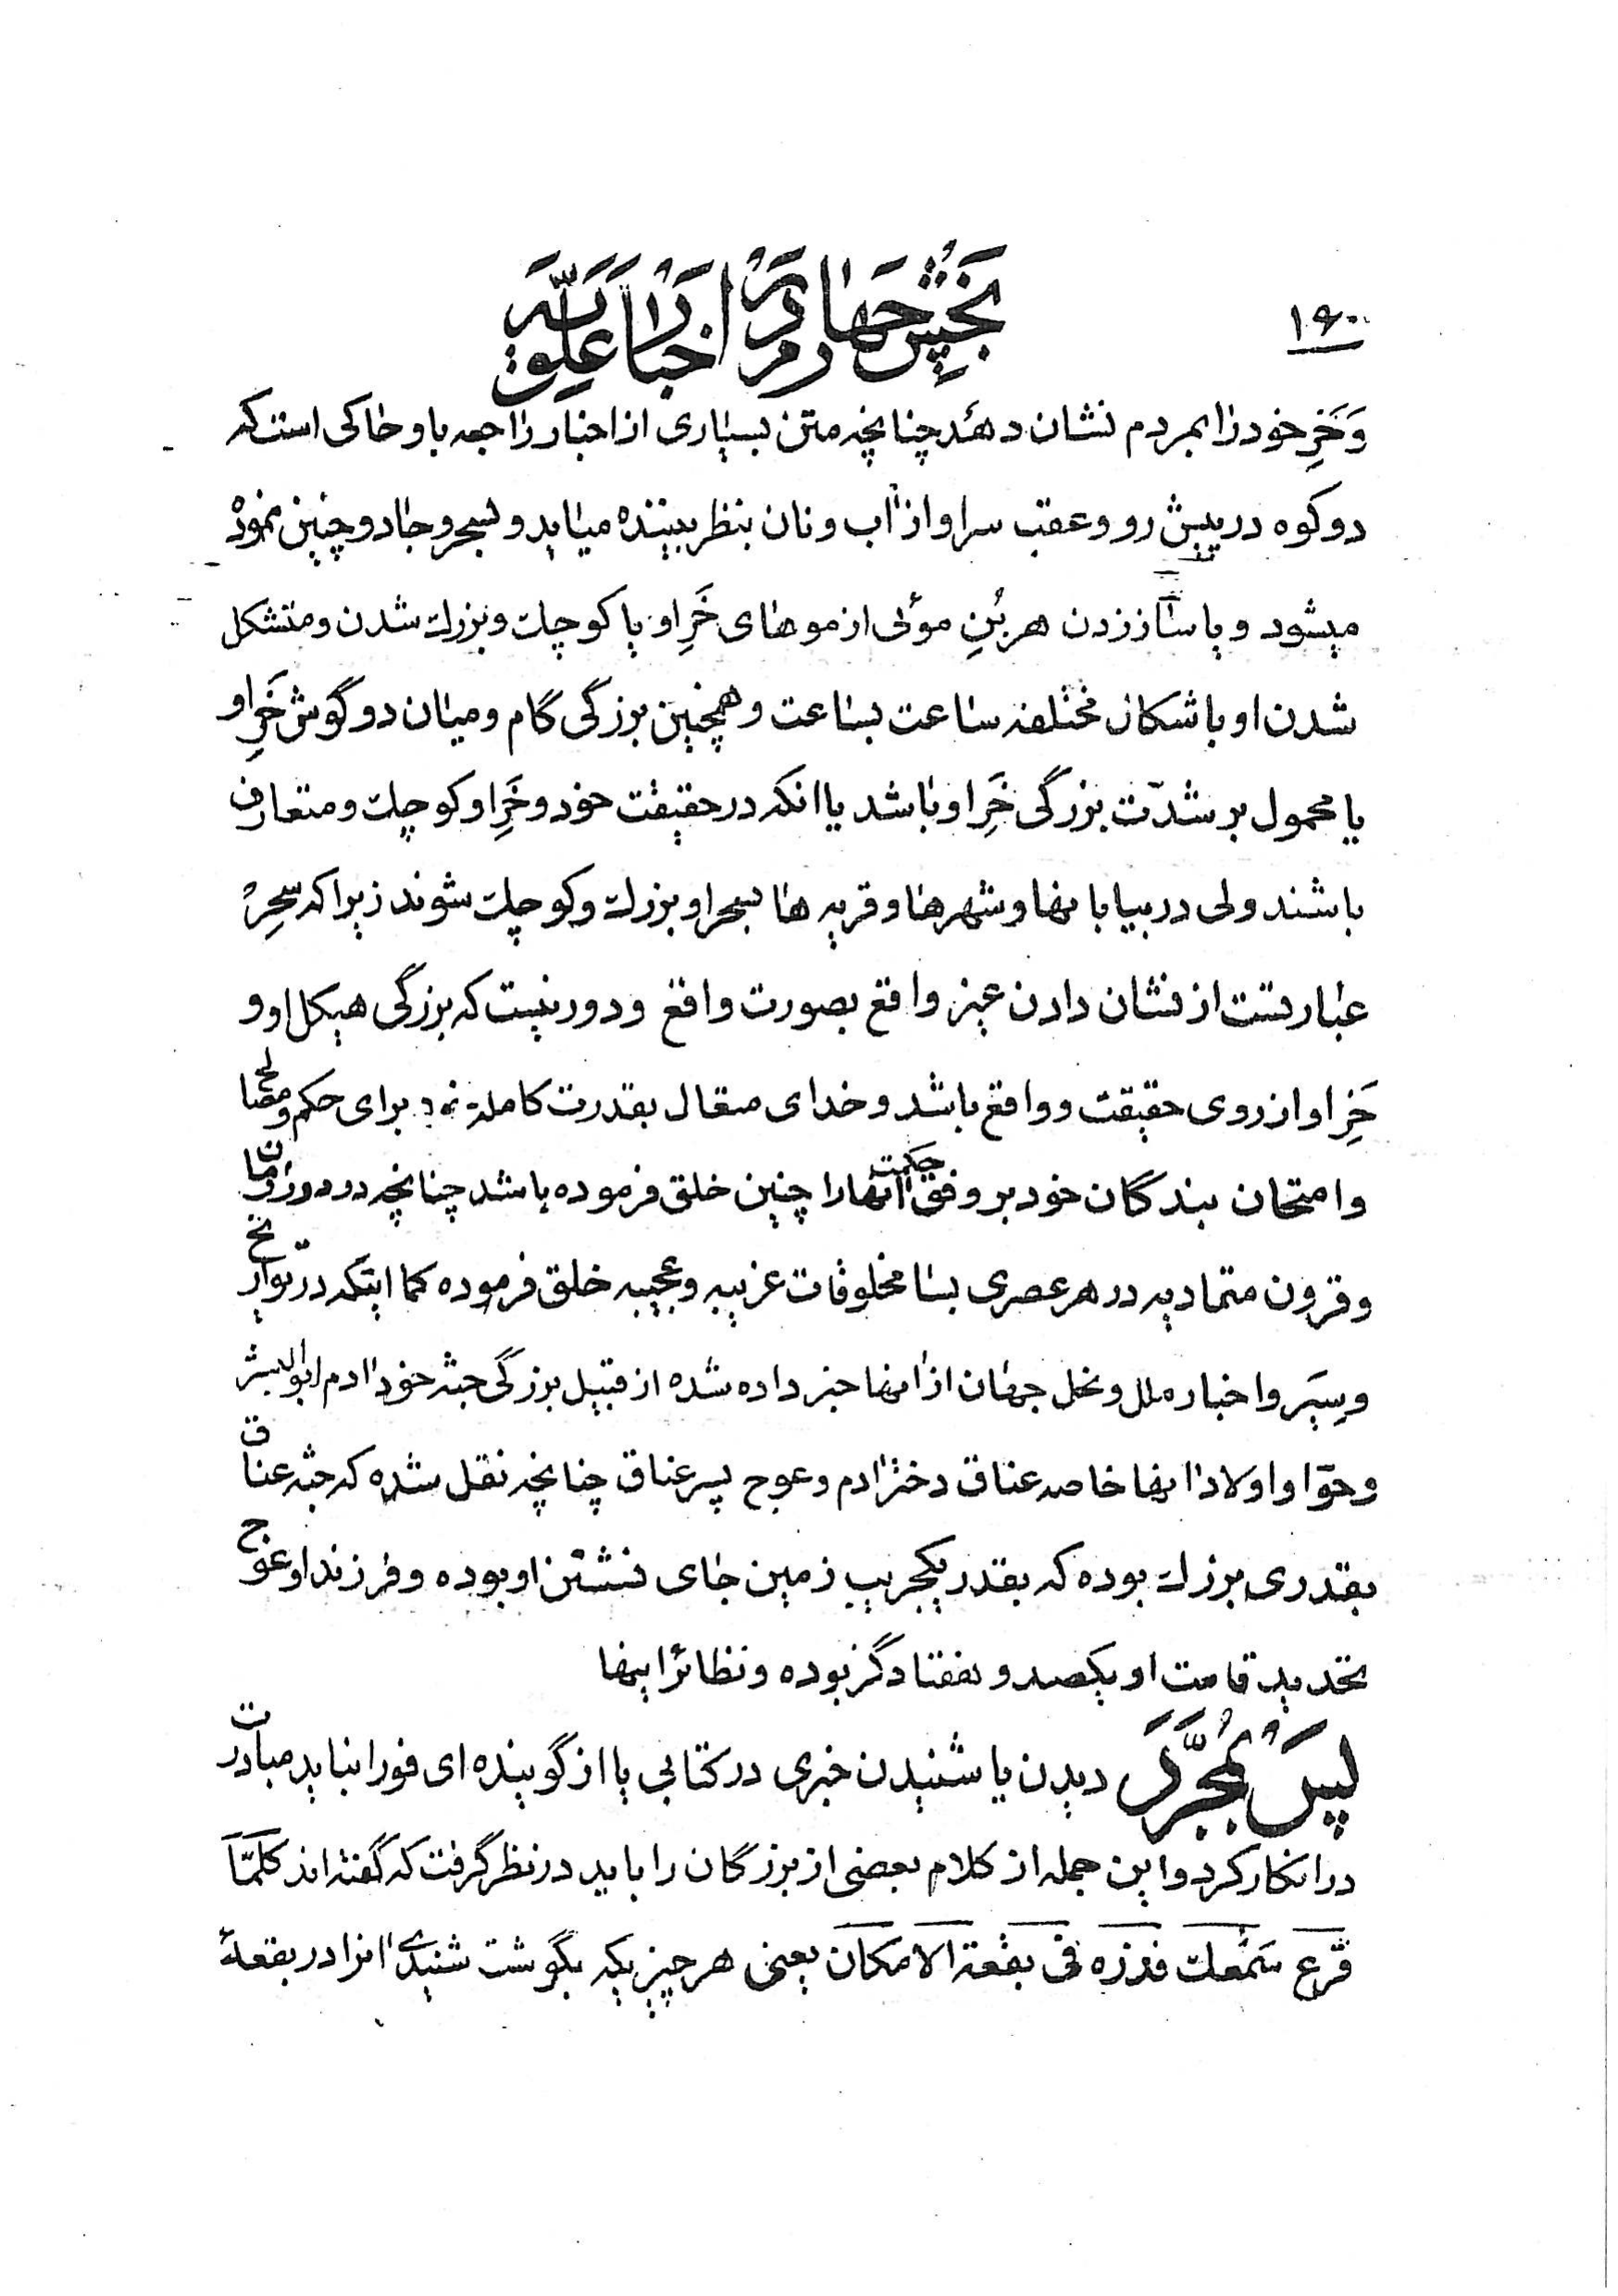 ۱۶۰
بخش چهارم در اخبار علویه
وَخَرِ خود را بمردم نشان دهد چنانچه متن بسیاری از اخبار راجعه باو حاکی است که
دو کوه در پیش رو و عقب سر او از آب و نان بنظر بیننده میاید و بسحر و جادو چنین نموده
میشود و یا ساز زدن هر بُنِ موئی از موهای خَرِ او یا کوچک و بزرک شدن و متشکل
شدن او باشکال مختلفه ساعت بساعت و همچنین بزرگی گام و میان دو گوش خَرِ او
یا محمول بر شدّت بزرگی خَرِ او باشد یا انکه در حقیقت خود و خَرِ او کوچک و متعارف
باشند ولی در بیابانها و شهرها و قریه ها بسحر او بزرک و کوچک شوند زیرا که سِحر
عبارتست از نشان دادن غیر واقع بصورت واقع و دور نیست که بزرگی هیکل او و
خَرِ او از روی حقیقت و واقع باشد و خدای متعال بقدرت کامله خود برای حکم و مصالح
و امتحان بندگان خود بر وفق حکمت آنها را چنین خلق فرموده باشد چنانچه در دور و زمان
و قرون متمادیه در هر عصری بسا مخلوقات غریبه و عجیبه خلق فرموده کما اینکه در تواریخ
و سِیَر و اخبار ملل و نحل جهان از آنها خبر داده شده از قبیل بزرگی جثه خود آدم ابوالبشر
و حوّا و اولاد آنها خاصه عناق دختر آدم و عوج پسر عناق چنانچه نقل شده که جثه عناق
بقدری بزرک بوده که بقدر یکجریب زمین جای نشستن او بوده و فرزند او عوج
بتحدید قامت او یکصد و هفتاد گز بوده و نظائر اینها
پس بمجرَّد دیدن یا شنیدن خبری در کتابی یا از گوینده ای فورا نباید مبادرت
در انکار کرد و این جمله از کلام بعضی از بزرگان را باید در نظر گرفت که گفته اند کلَّما
قرع سَمعک فذره فی بقعة الامکان یعنی هر چیزیکه بگوشت شنیدی آنرا در بقعهٔ